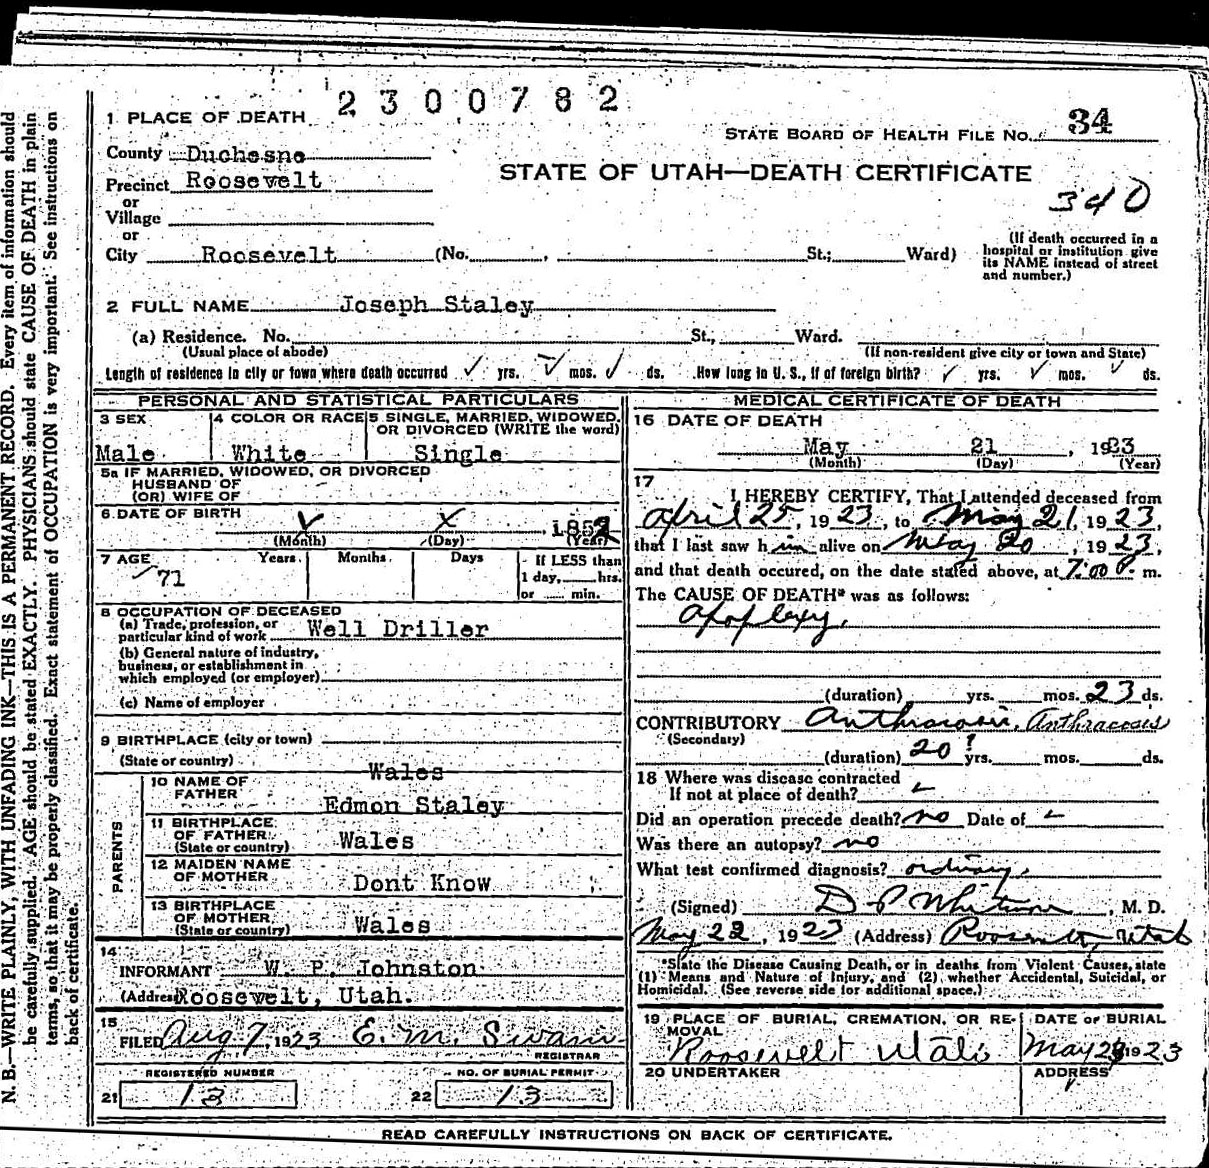 2300782
1 PLACE OF DEATH
STATE BOARD OF HEALTH FILE No. 34
County Duchesne
STATE OF UTAH—DEATH CERTIFICATE
Precinct Roosevelt
340
or
Village
or
City Roosevelt (No. , St.; Ward)
(If death occurred in a hospital or institution give its NAME instead of street and number.)
2 FULL NAME Joseph Staley
(a) Residence. No. St., Ward.
(Usual place of abode) (If non-resident give city or town and State)
Length of residence in city or town where death occurred ✓ yrs. ✓ mos. ✓ ds. How long in U. S., if of foreign birth? ✓ yrs. ✓ mos. ✓ ds.
PERSONAL AND STATISTICAL PARTICULARS
3 SEX
Male
4 COLOR OR RACE
White
5 SINGLE, MARRIED, WIDOWED, OR DIVORCED (WRITE the word)
Single
5a IF MARRIED, WIDOWED, OR DIVORCED
HUSBAND OF
(OR) WIFE OF
6 DATE OF BIRTH
(Month) (Day) (Year)
7 AGE Years Months Days If LESS than
71 1 day, hrs.
or min.
8 OCCUPATION OF DECEASED
(a) Trade, profession, or
particular kind of work Well Driller
(b) General nature of industry,
business, or establishment in
which employed (or employer)
(c) Name of employer
9 BIRTHPLACE (city or town)
(State or country) Wales
PARENTS
10 NAME OF
FATHER Edmon Staley
11 BIRTHPLACE
OF FATHER Wales
(State or country)
12 MAIDEN NAME
OF MOTHER Dont Know
13 BIRTHPLACE
OF MOTHER
(State or country) Wales
14
INFORMANT W. P. Johnston
(Address) Roosevelt, Utah.
15
FILED Aug 7, 1923 E. M. Swain
REGISTRAR
REGISTERED NUMBER NO. OF BURIAL PERMIT
21 13 22 13
MEDICAL CERTIFICATE OF DEATH
16 DATE OF DEATH
May 21, 1923
(Month) (Day) (Year)
17
I HEREBY CERTIFY, That I attended deceased from
April 25, 1923, to May 21, 1923,
that I last saw him alive on May 20, 1923,
and that death occured, on the date stated above, at 7:00 P. m.
The CAUSE OF DEATH* was as follows:
Apoplexy.
(duration) yrs. mos. 23 ds.
CONTRIBUTORY Anthracosis. Anthracosis
(Secondary)
(duration) 20? yrs. mos. ds.
18 Where was disease contracted
If not at place of death?
Did an operation precede death? no Date of
Was there an autopsy? no
What test confirmed diagnosis? ordinary.
(Signed) D P Whitmore, M. D.
May 22, 1923 (Address) Roosevelt, Utah
*State the Disease Causing Death, or in deaths from Violent Causes, state
(1) Means and Nature of Injury, and (2) whether Accidental, Suicidal, or
Homicidal. (See reverse side for additional space.)
19 PLACE OF BURIAL, CREMATION, OR RE-
MOVAL
Roosevelt Utah
DATE OF BURIAL
May 1923
20 UNDERTAKER
ADDRESS
READ CAREFULLY INSTRUCTIONS ON BACK OF CERTIFICATE.
N. B.—WRITE PLAINLY, WITH UNFADING INK—THIS IS A PERMANENT RECORD. Every item of information should
be carefully supplied. AGE should be stated EXACTLY. PHYSICIANS should state CAUSE OF DEATH in plain
terms, so that it may be properly classified. Exact statement of OCCUPATION is very important. See instructions on
back of certificate.